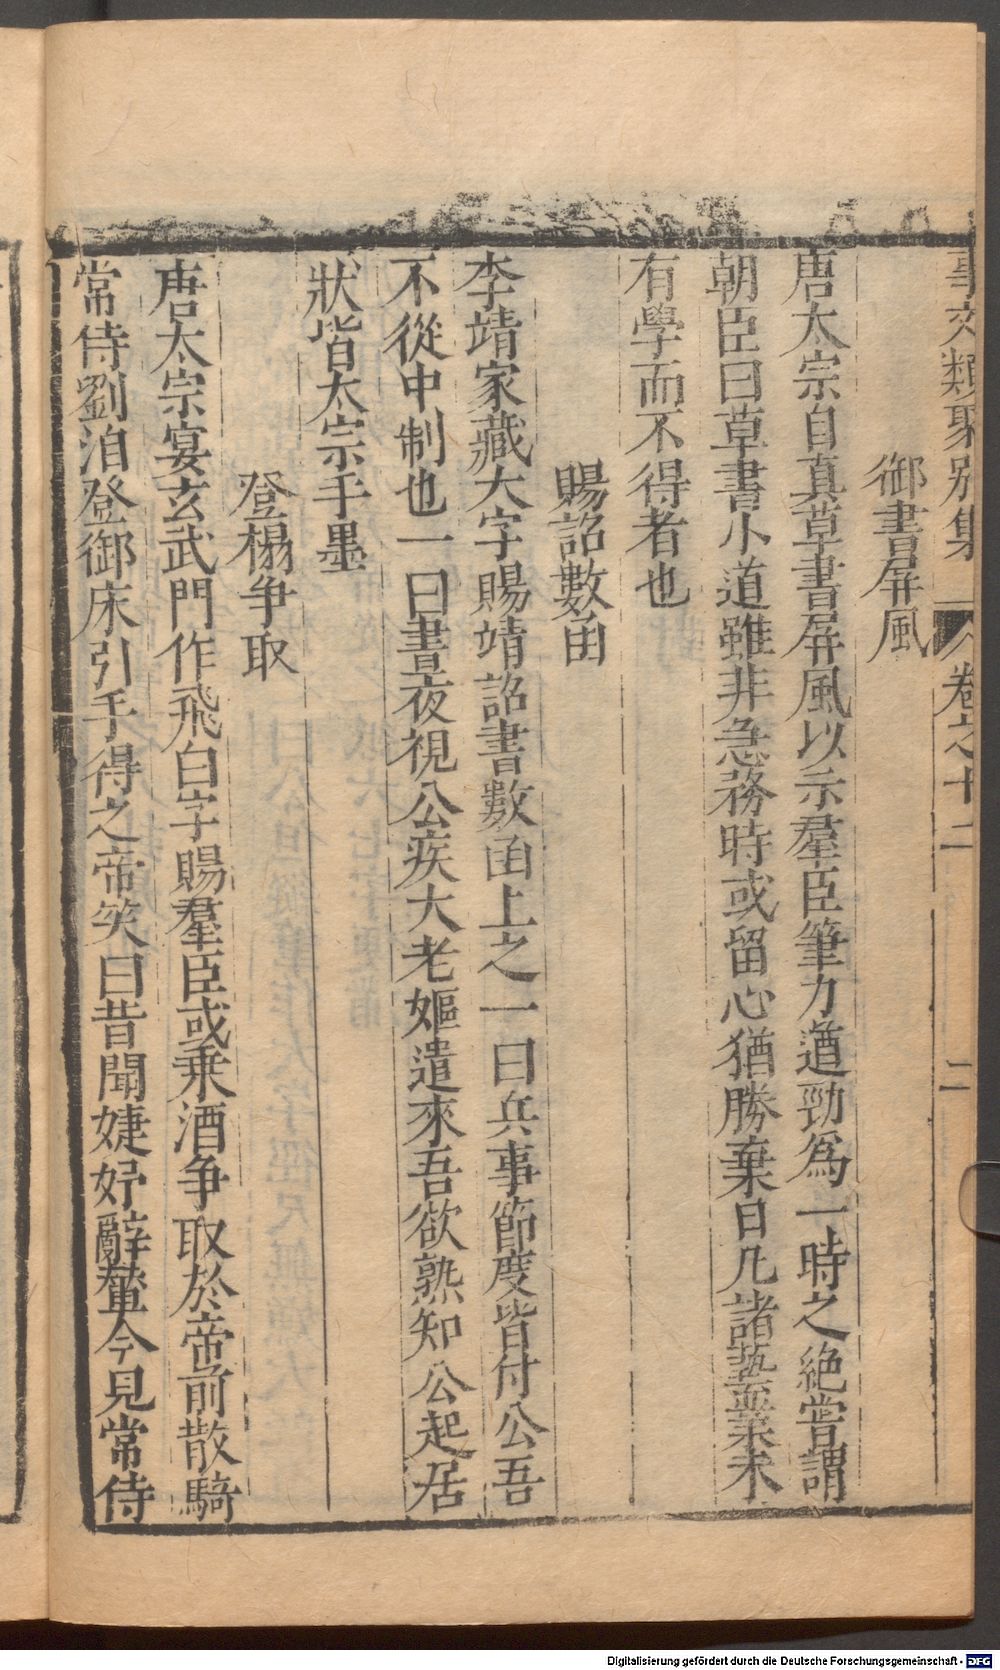 事文類聚別集 卷之十二 二
御書屏風
唐太宗自真草書屏風以示羣臣筆力遒勁爲一時之絶嘗謂
朝臣曰草書小道雖非急務時或留心猶勝棄日凡諸藝業未
有學而不得者也
賜詔數函
李靖家藏大字賜靖詔書數函上之一曰兵事節度皆付公吾
不從中制也一曰晝夜視公疾大老嫗遣來吾欲熟知公起居
狀皆太宗手墨
登榻争取
唐太宗宴玄武門作飛白字賜羣臣或乘酒争取於帝前散騎
常侍劉洎登御床引手得之帝笑曰昔聞婕妤辭輦今見常侍
Digitalisierung gefördert durch die Deutsche Forschungsgemeinschaft - DFG